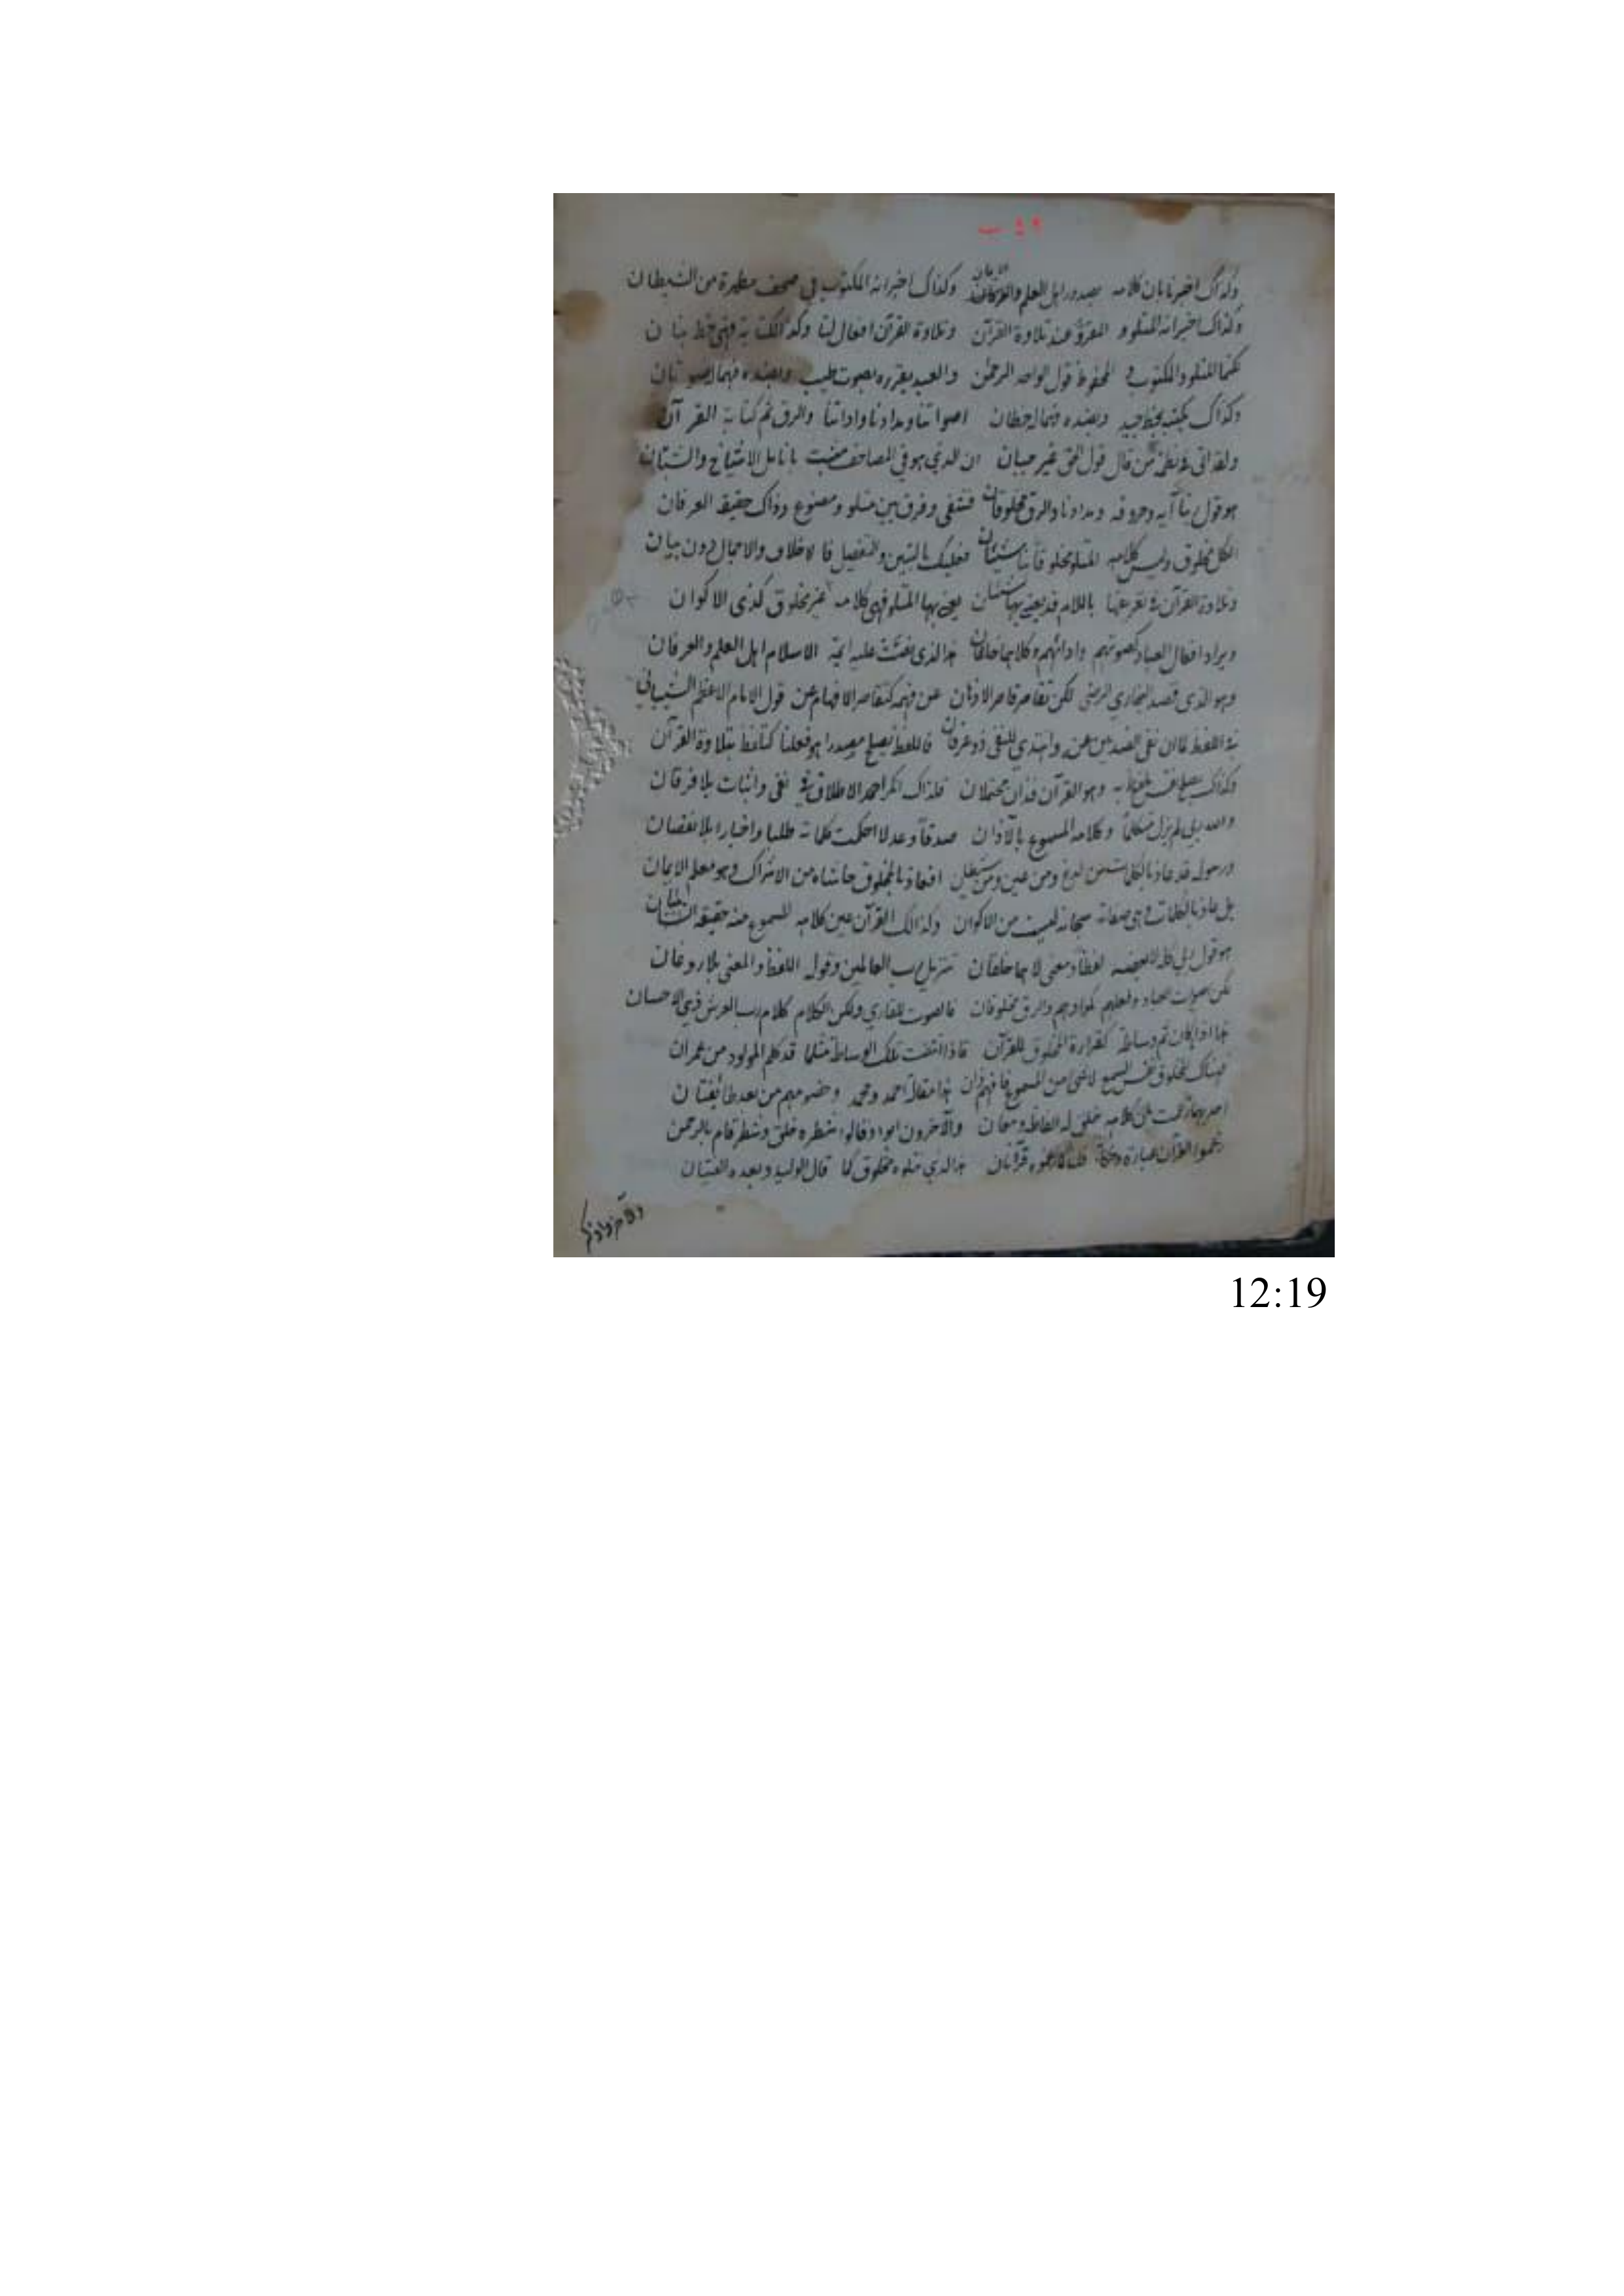 وكذاك اخبرنا بان كلامه بصدور اهل العلم والايمان وكذاك اخبر انه المكتوب في صحف مطهرة من الشيطان
وكذاك اخبر انه المتلو و المقروّ عند تلاوة القرآن وتلاوة القرآن افعال لنا وكذا الكتابة فهي خط بنان
لكنما المتلو والمكتوب و المحفوظ قول الواحد الرحمن والعبد يقرؤه بصوت طيب وبضده فهما له صوتان
وكذاك يكتبه بخط جيد وبضده فهما له خطان اصواتنا ومدادنا واداتنا والرق ثم كتابة القرآن
ولقد اتى في نظمه من قال قول الحق غير جبان ان الذي هو في المصاحف مثبت بانامل الاشياخ والشبان
هو قول ربنا آيه وحروفه ومدادنا والرق مخلوقان فشفى وفرق بين متلو ومصنوع وذاك حقيقة العرفان
الكل مخلوق وليس كلامه المتلو مخلوقا هنا شيئان فعليك بالتبين والتفصيل فا لاطلاق والاجمال دون بيان
وتلاوة القرآن في تعريفها باللام قد يعنى بها شيئان يعنى بها المتلو فهو كلامه غير مخلوق كذى الاكوان
ويراد افعال العباد كصوتهم وادائهم وكلاهما خلقان هذا الذي نصت عليه ائمة الاسلام اهل العلم والعرفان
وهو الذي قصد البخاري الرضى لكن تقاصر قاصر الاذهان عن فهمه كتقاصر الافهام عن قول الامام الاعظم الشيباني
في اللفظ لما ان نفى الضدين عنه واهتدى للنفي ذو عرفان فاللفظ يصلح مصدرا هو فعلنا كتلفظ بتلاوة القرآن
وكذاك يصلح نفس ملفوظ به وهو القرآن فذان محتملان فلذاك انكر احمد الاطلاق في نفي واثبات بلا فرقان
والله ربي لم يزل متكلما وكلامه المسموع بالآذان صدقا وعدلا احكمت كلماته طلبا واخبارا بلا نقصان
ورسوله قد عاذ بالكلمات من لدغ ومن عين ومن شيطان افعاذ بالمخلوق حاشاه من الاشراك وهو معلم الايمان
بل عاذ بالكلمات وهي صفاته سبحانه ليست من الاكوان وكذلك القرآن عين كلامه المسموع منه حقيقة التبيان
هو قول ربي كله لا بعضه لفظا ومعنى لا هما خلقان تنزيل رب العالمين وقوله اللفظ والمعنى بلا روغان
لكن صوات العباد وفعلهم كمدادهم والرق مخلوقان فالصوت للقاري ولكن الكلام كلام رب العرش ذي الاحسان
هذا اذا كان ثم وساطة كقراءة المخلوق للقرآن فاذا انتفت تلك الوساطة مثلما قد كلم المولود من عمران
فهنالك المخلوق نفس السمع لا شئ من المسموع فافهم ذان هذا مقالة احمد ومحمد وخصومهم من بعد طائفتان
احديهما زعمت بان كلامه خلق له الفاظه ومعان والآخرون ابوا وقالوا شطره خلق وشطر قام بالرحمن
زعموا القرآن عبارة وحكاية قلنا كما زعموه قرآنان هذا الذي نتلوه مخلوق كما قال الوليد وبعده الفتيان
12:19